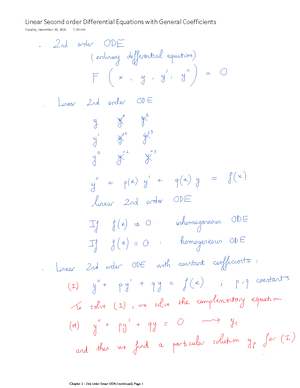 Linear Second order Differential Equations with General Coefficients
. 2nd order ODE
(ordinary differential equation)
F ( x , y , y' , y'' ) = 0
. Linear 2nd order ODE
y y² y³
y' y'² y'³
y'' y''² y''³
y'' + p(x) y' + q(x) y = f(x)
linear 2nd order ODE
If f(x) ≠ 0 : inhomogeneous ODE
If f(x) = 0 : homogeneous ODE
. Linear 2nd order ODE with constant coefficients:
(I) y'' + py' + qy = f(x) ; p, q constants
To solve (I), we solve the complementary equation
(H) y'' + py' + qy = 0 ⟶ yc
and then we find a particular solution yp for (I)
Chapter 2 - 2nd order linear ODE (continued) Page 1